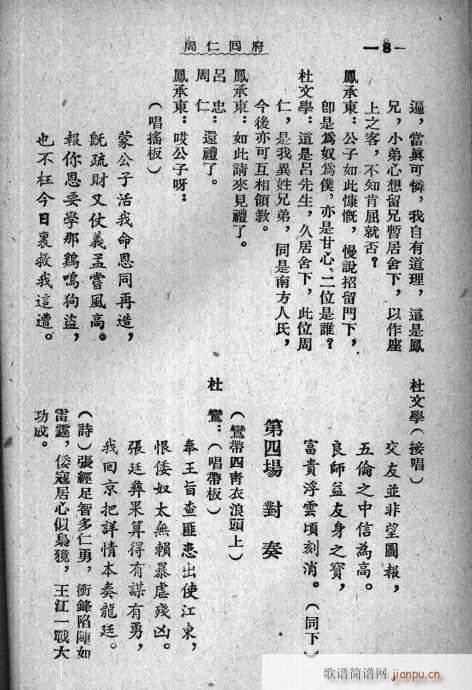 周仁回府
—8—
逼，當眞可憐，我自有道理，這是鳳
兄，小弟心想留兄暫居舍下，以作座
上之客，不知肯屈就否？
鳳承東：公子如此慷慨，慢說招留門下，
卽是爲奴爲僕，亦是甘心。二位是誰？
杜文學：這是呂先生，久居舍下，此位周
仁，是我異姓兄弟，同是南方人氏，
今後亦可互相領教。
鳳承東：如此請來見禮了。
呂忠：
周仁：還禮了。
鳳承東：哎公子呀：
（唱搖板）
蒙公子活我命恩同再造，
旣疏財又仗義孟嘗風高。
報你恩要學那鷄鳴狗盜，
也不枉今日裏救我這遭。
杜文學（接唱）
交友並非望圖報，
五倫之中信為高。
良師益友身之寶，
富貴浮雲頃刻消。（同下）
第四場 對奏
（鸞帶四靑衣浪頭上）
杜鸞：（唱帶板）
奉王旨查匪患出使江東，
恨倭奴太無賴暴虐殘凶。
張廷彝果算得有謀有勇，
我回京把詳情本奏龍廷。
（詩）張經足智多仁勇，衝鋒陷陣如
雷霆，倭寇居心似梟獍，王江一戰大
功成。
歌谱简谱网
jianpu.cn